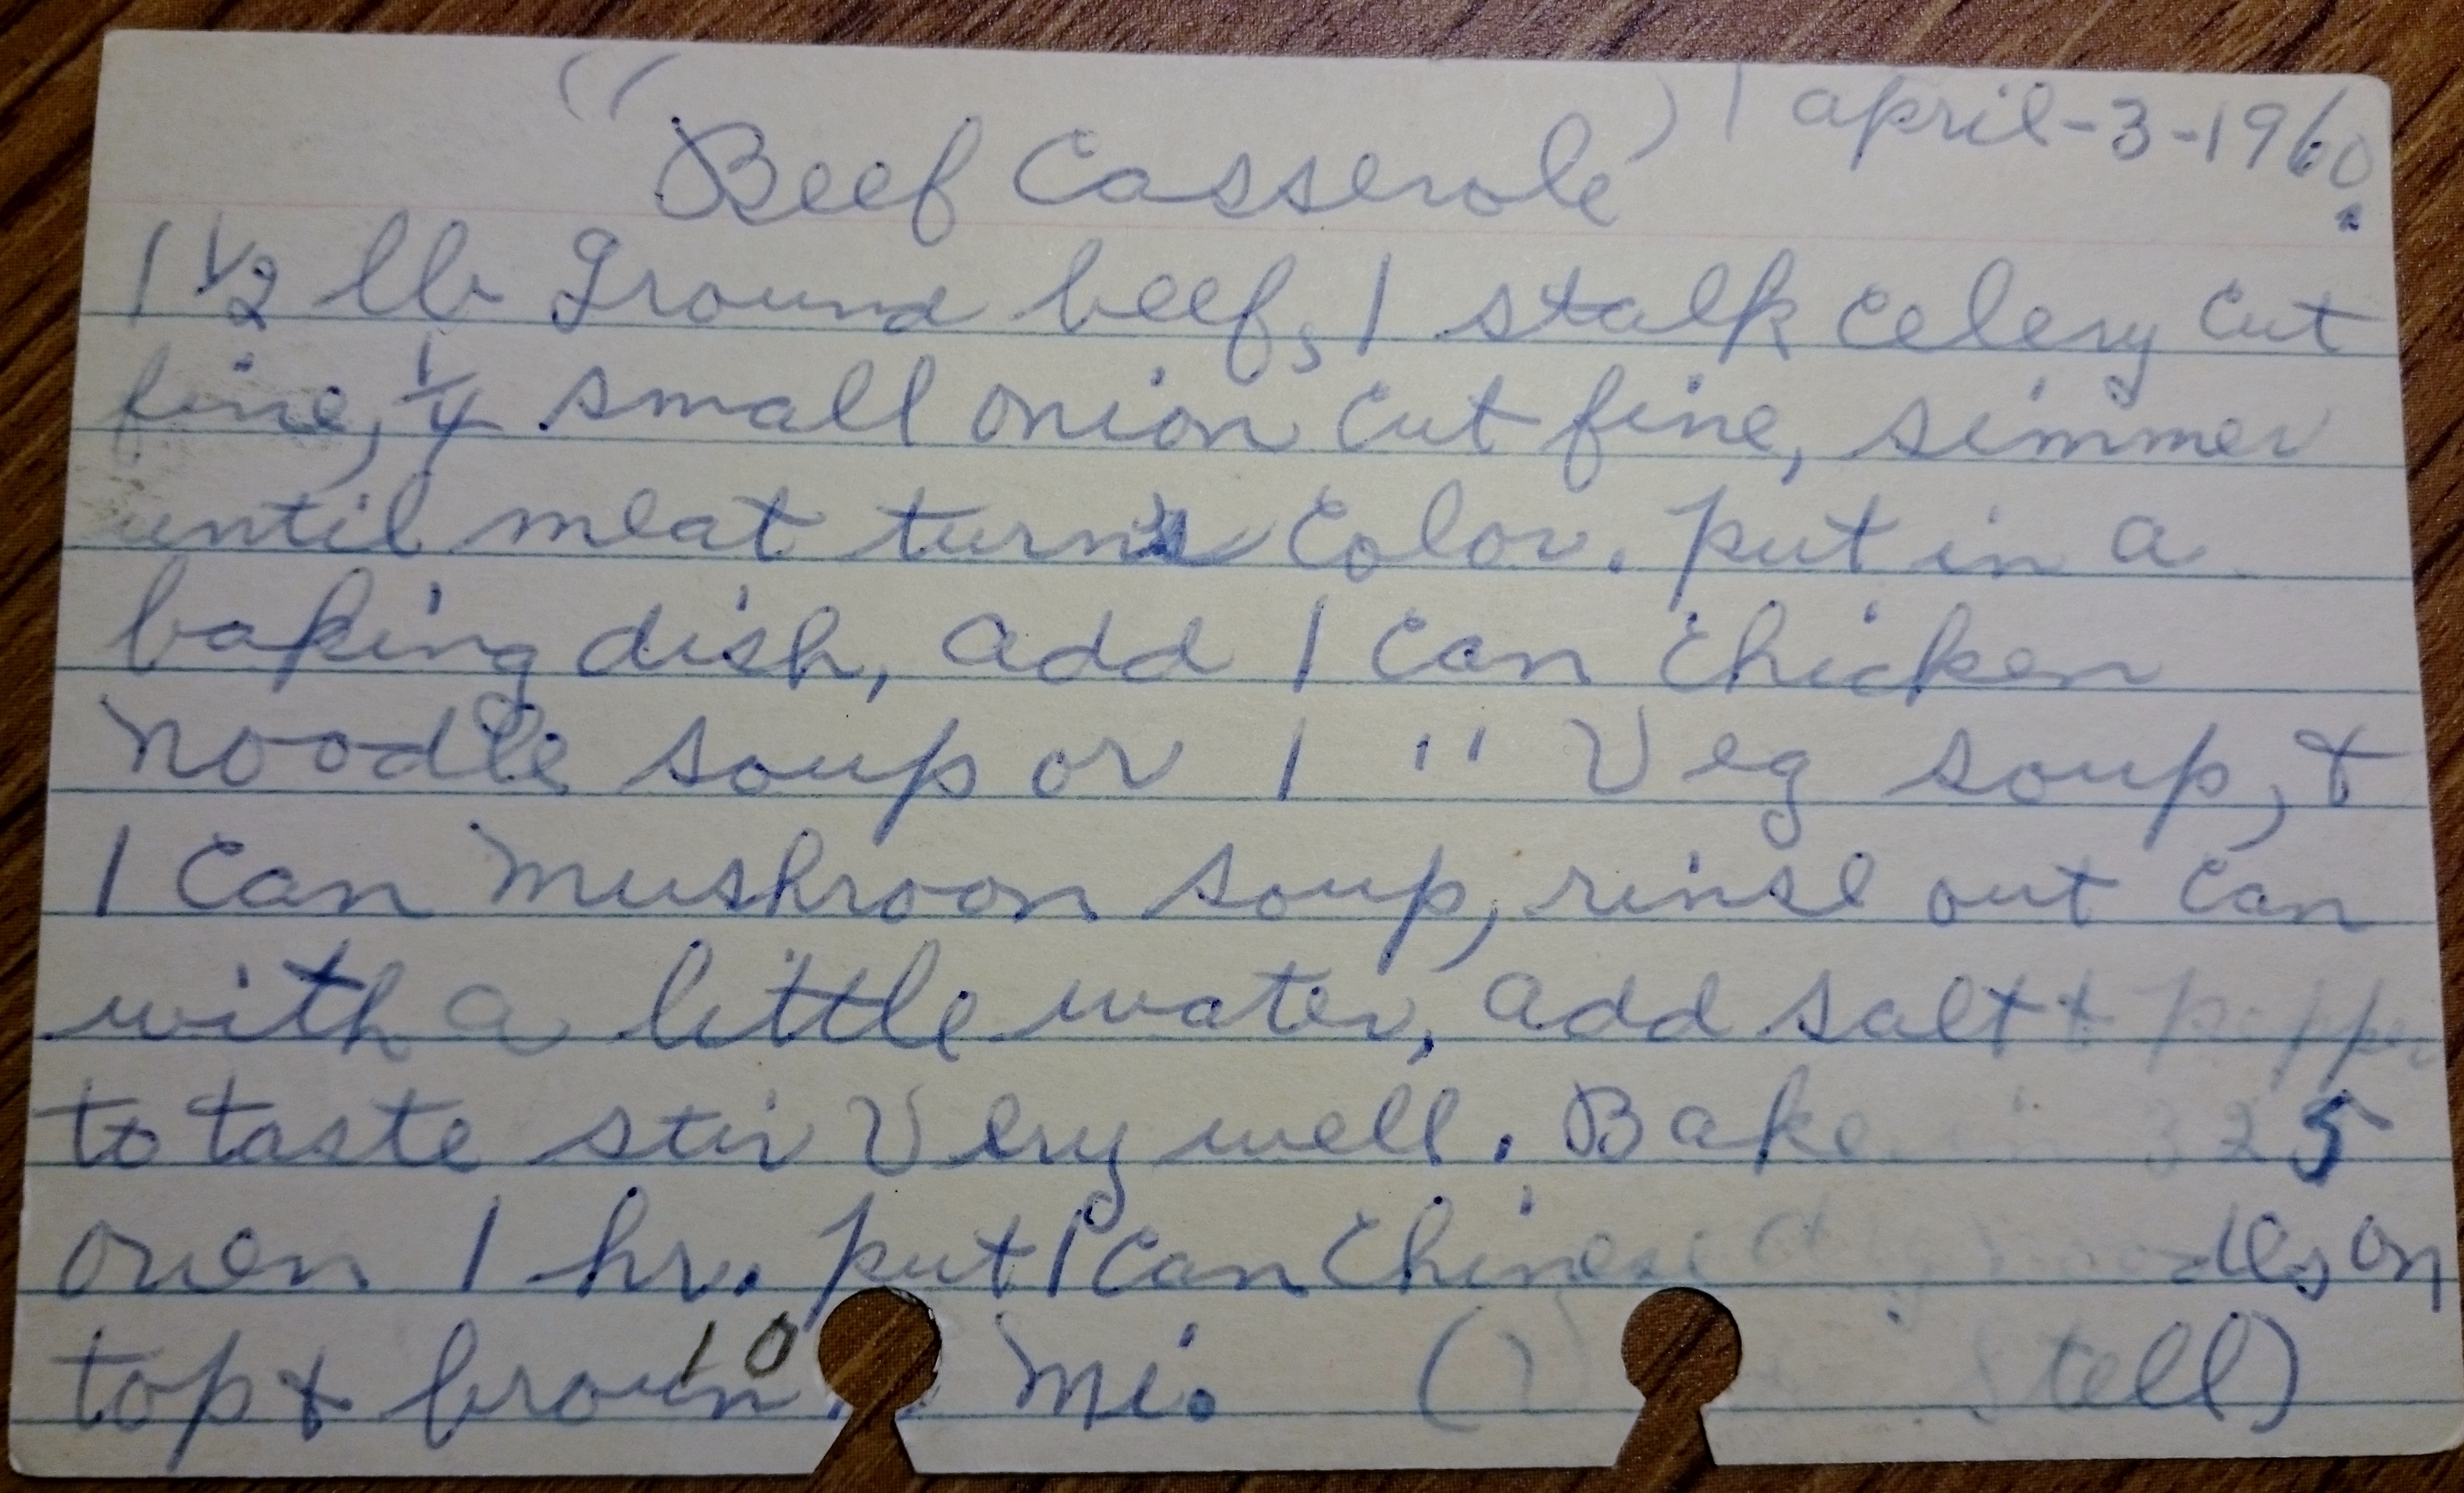 "Beef Casserole" april-3-1960.
1 1/2 lb ground beef, 1 stalk celery cut
fine, 1/4 small onion cut fine, simmer
until meat turns color. put in a
baking dish, add 1 can chicken
noodle soup or 1 " Veg soup, &
1 can mushroon soup, rinse out can
with a little water, add salt & pepper
to taste stir Very well. Bake in 325
oven 1 hr. put 1 can Chinese noodles on
top & brown 10 mi. ( Stell)